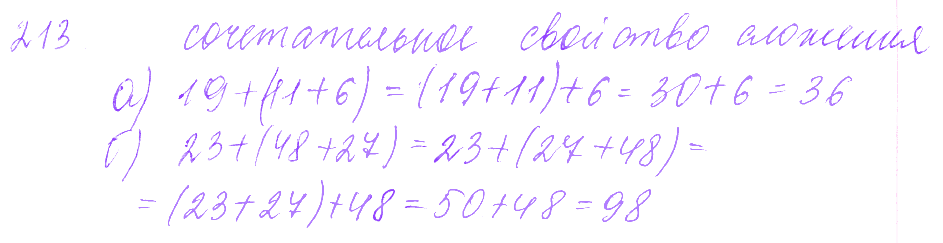 213 сочетательное свойство сложения
а) 19+(11+6) = (19+11)+6 = 30+6 = 36
б) 23+(48+27) = 23+(27+48) =
= (23+27)+48 = 50+48 = 98